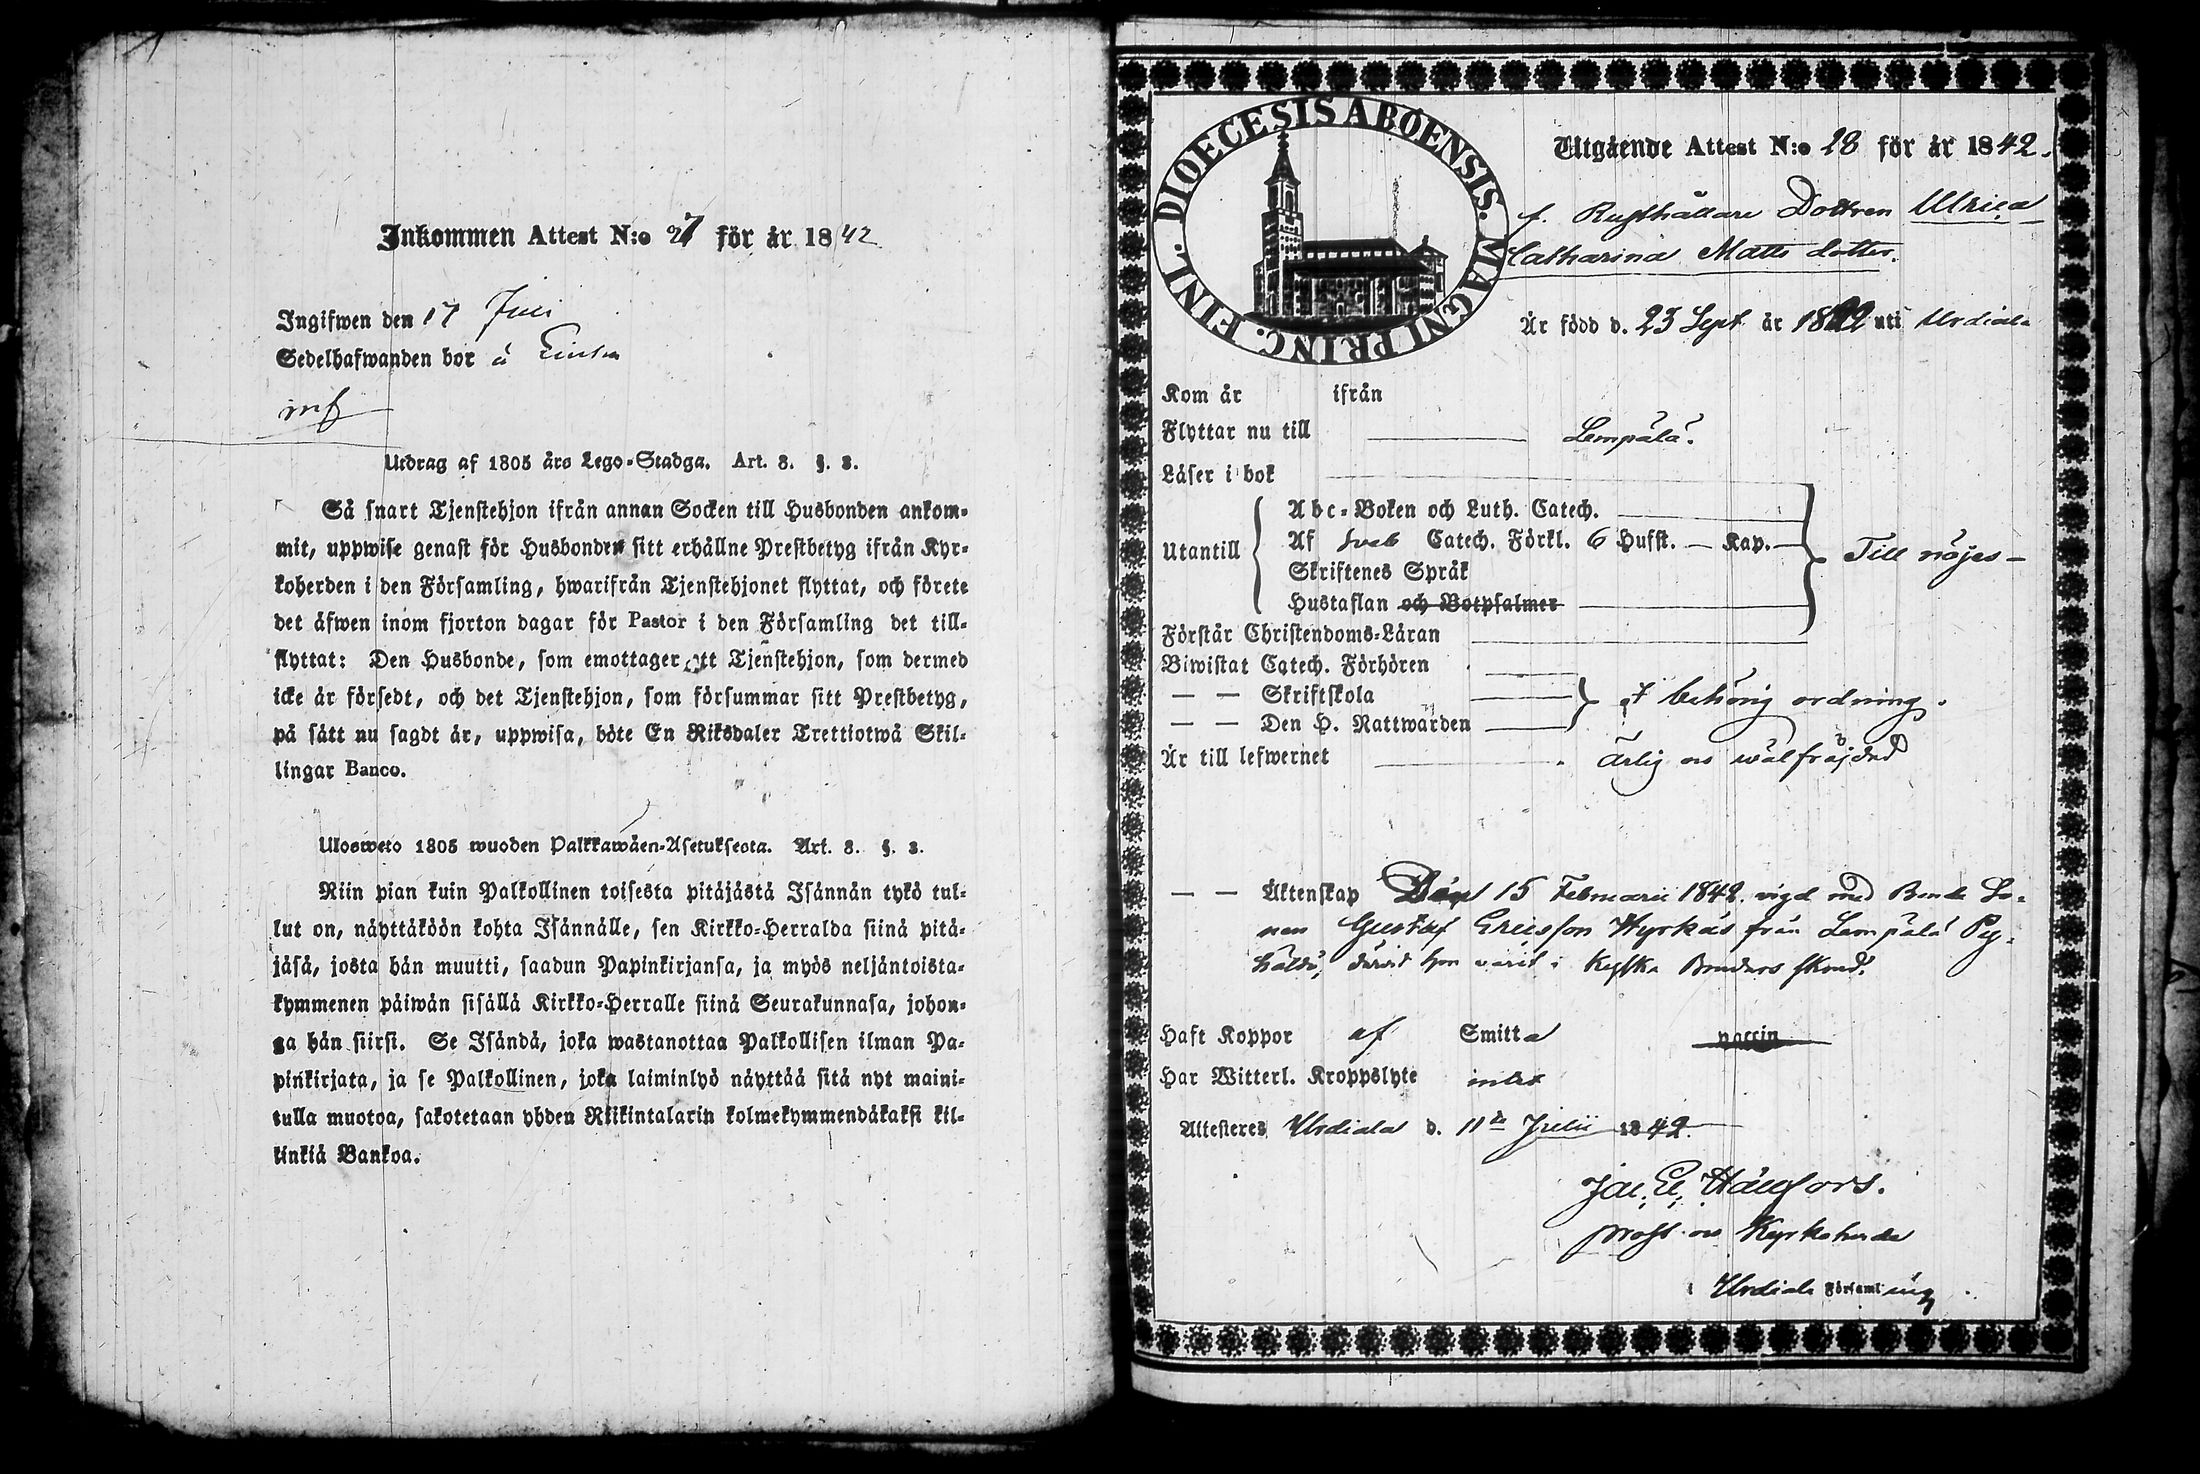 Inkommen Attest N:o 27 för år 1842
Ingifwen den 17 Juli
Sedelhafwanden bor å
Utdrag af 1805 års Lego-Stadga. Art. 8. §. 3.
Så snart Tjenstehjon ifrån annan Socken till Husbonden ankom-
mit, uppwise genast för Husbonden sitt erhållne Prestbetyg ifrån Kyr-
koherden i den Församling, hwarifrån Tjenstehjonet flyttat, och förete
det äfwen inom fjorton dagar för Pastor i den Församling det till-
flyttat: Den Husbonde, som emottager ett Tjenstehjon, som dermed
icke är försedt, och det Tjenstehjon, som försummar sitt Prestbetyg,
på sätt nu sagdt är, uppwisa, böte En Riksdaler Trettiotwå Skil-
lingar Banco.
Ulosweto 1805 wuoden Palkkawäen-Asetuksesta. Art. 8. §. 3.
Niin pian kuin Palkollinen toisesta pitäjästä Isännän tykö tul-
lut on, näyttäköön kohta Isännälle, sen Kirkko-Herralda siinä pitä-
jäsä, josta hän muutti, saadun Papinkirjansa, ja myös neljäntoista-
kymmenen päiwän sisällä Kirkko-Herralle siinä Seurakunnasa, johon-
ga hän siirsi. Se Isändä, joka wastanottaa Palkollisen ilman Pa-
pinkirjata, ja se Palkollinen, joka laiminlyö näyttää sitä nyt maini-
tulla muotoa, sakotetaan yhden Riikintalarin kolmekymmendäkaksi kil-
linkiä Bankoa.
DIOECESIS ABOENSIS. MAGNI PRINC. FINL.
Utgående Attest N:o 28 för år 1842.
f. Rusthållare Dottren Ulrica
Catharina Matts dotter.
Är född d. 23 Sept år 1822 uti Urdiala
Kom år ifrån
Flyttar nu till Lempälä.
Läser i bok
Utantill
Abc-Boken och Luth. Catech.
Af Sveb Catech. Förkl. 6 Hufst. — Kap. —
Skriftenes Språk
Hustaflan och Botpsalmer
Till nöjes —
Förstår Christendoms-Läran
Biwistat Catech. Förhören
— — Skriftskola
— — Den H. Nattwarden
I behörig ordning.
Är till lefwernet ärlig os wälfräjdad
— — Äktenskap Den 15 Februarii 1842 vigd med Bonde So-
nen Gustaf Ericsson Hyrkäs från Lempälä
hon varit i
Haft Koppor af Smitta vaccin
Har Witterl. Kroppslyte intet
Attesteras Urdiala d. 11te Julii 1842.
prost os Kyrkoherde
i Urdiala Församling